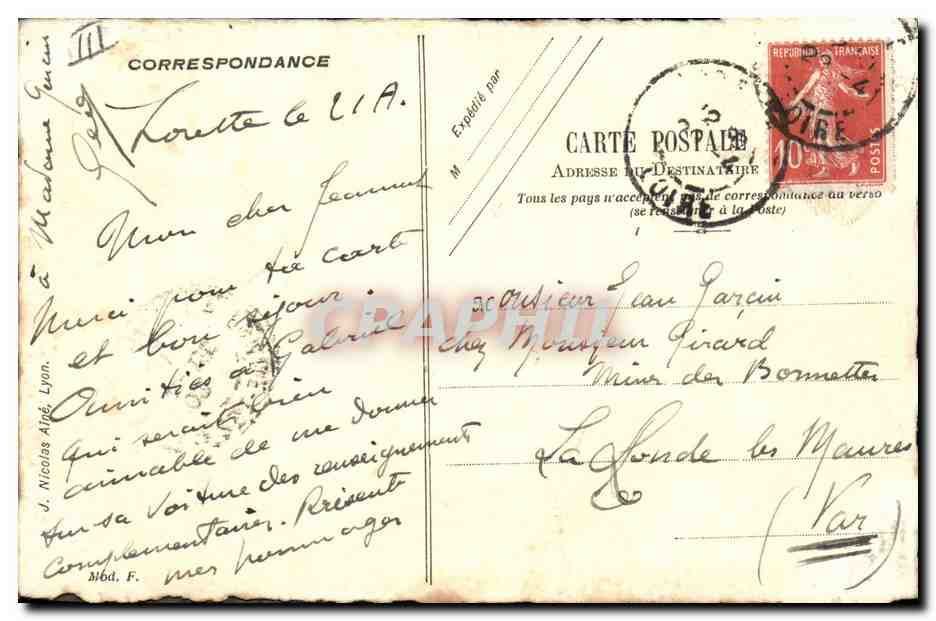 CORRESPONDANCE
III
Lorette le 21A.
Mon cher Jeannot
Merci pour ta carte
et bon séjour.
Amitiés à Gabriel
qui serait bien
aimable de me donner
sur sa voiture des renseignements
complémentaires. Présente
mes hommages
à Madame
J. Nicolas Aîné, Lyon.
Mod. F.
M
Expédié par
CARTE POSTALE
ADRESSE DU DESTINATAIRE
Tous les pays n'acceptent pas de correspondance au verso
(se renseigner à la Poste)
REPUBLIQUE FRANÇAISE
10c
POSTES
LOIRE
LOIRE
CPAPHIL
Monsieur Jean Garcin
chez Monsieur Girard
Mines des Bormettes
La Londe les Maures
(Var)